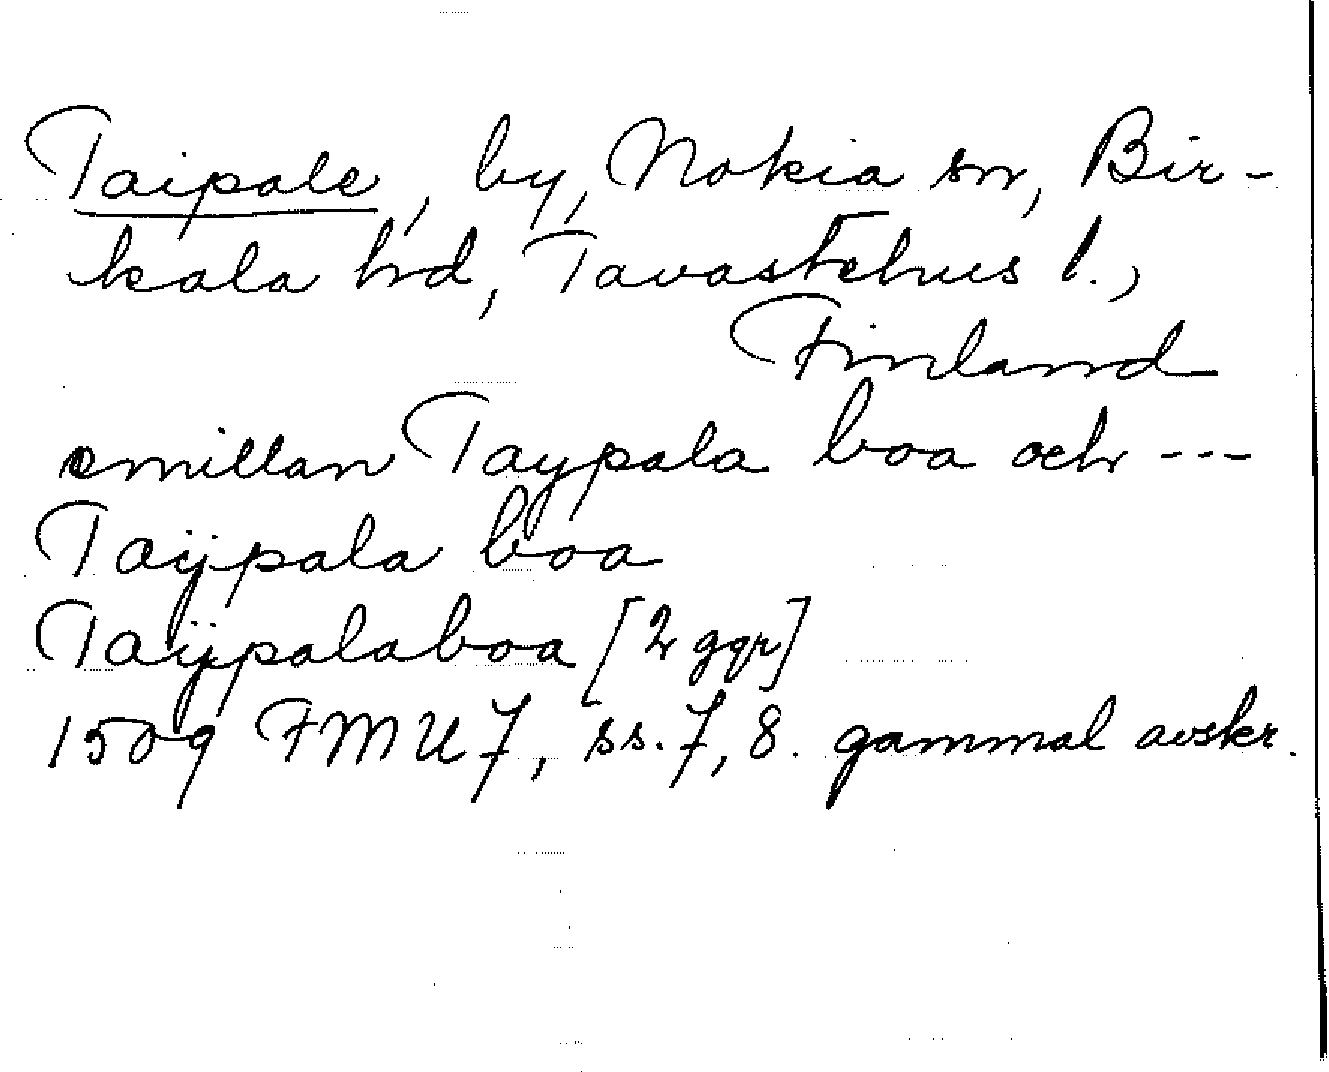 Taipale, by, Nokia sn, Bir-
kala hd, Tavastehus l.,
Finland
emillan Taypala boa och ---
Taÿpala boa
Taÿpalaboa [2 ggr]
1509 FMU 7, ss. 7, 8. gammal avskr.